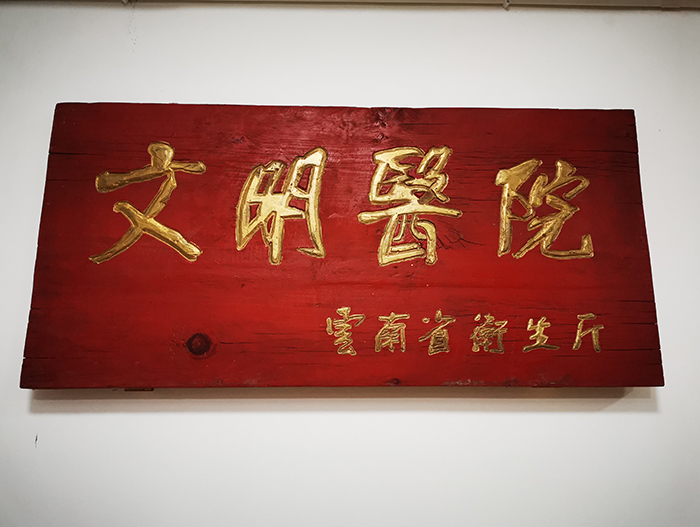 文明醫院
雲南省衛生厅